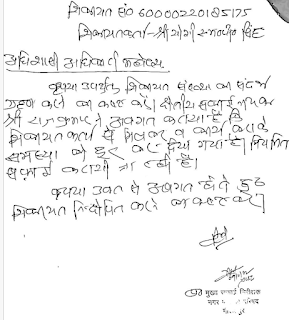 शिकायत सं० 60000220185175
शिकायतकर्ता - श्री योगी सिंह
अधिशासी अधिकारी महोदय
कृपया उपर्युक्त शिकायत संख्या का संदर्भ
ग्रहण करने का कष्ट करें। क्षेत्रीय सफाई नायक
श्री ने अवगत कराया है कि
शिकायत कर्ता से मिलकर व कार्य कराके
समस्या को दूर कर दिया गया है। नियमित
सफाई करायी जा रही है।
कृपया उक्त से अवगत होते हुए
शिकायत निस्तारित करने का कष्ट करें।
मुख्य सफाई निरीक्षक
नगर